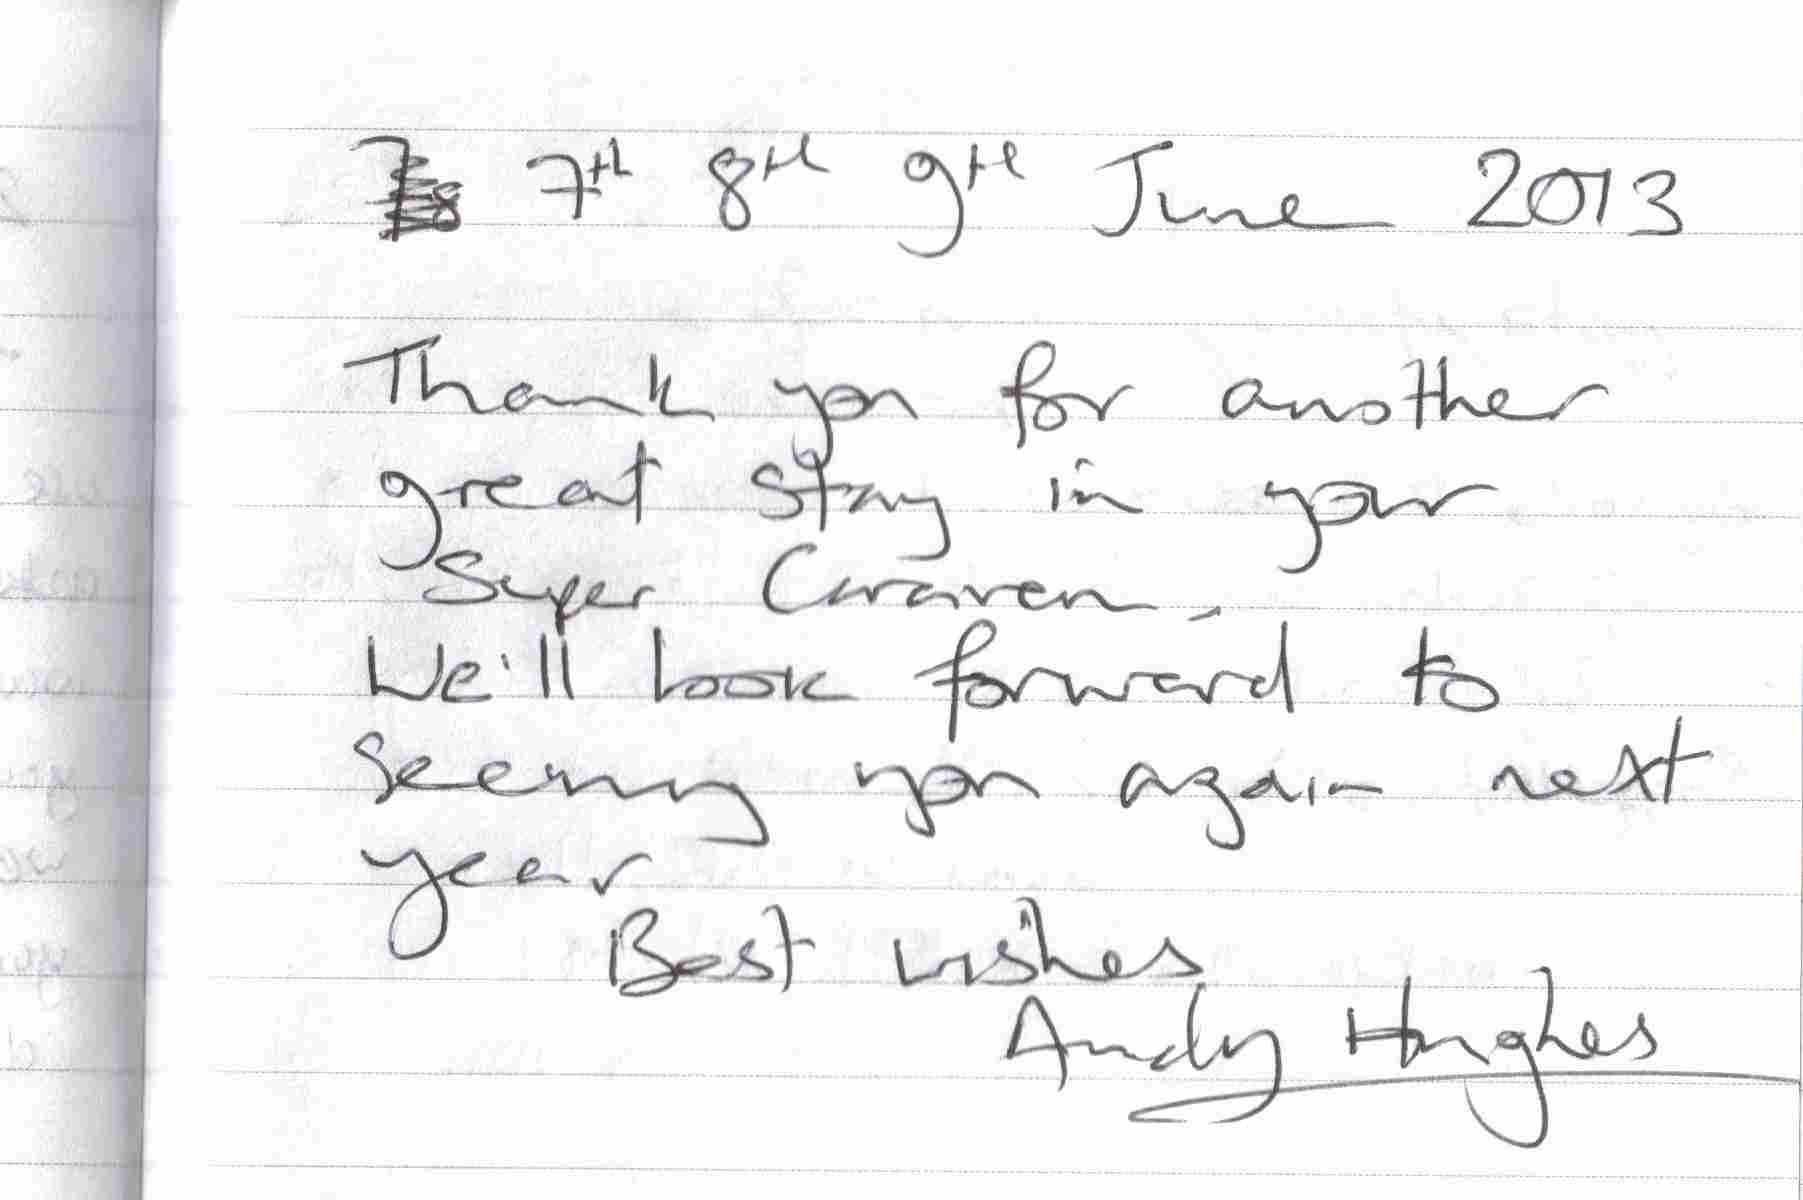 7th 8th 9th June 2013
Thank you for another
great stay in your
Super Caravan.
We'll look forward to
seeing you again next
year
Best wishes
Andy Hughes